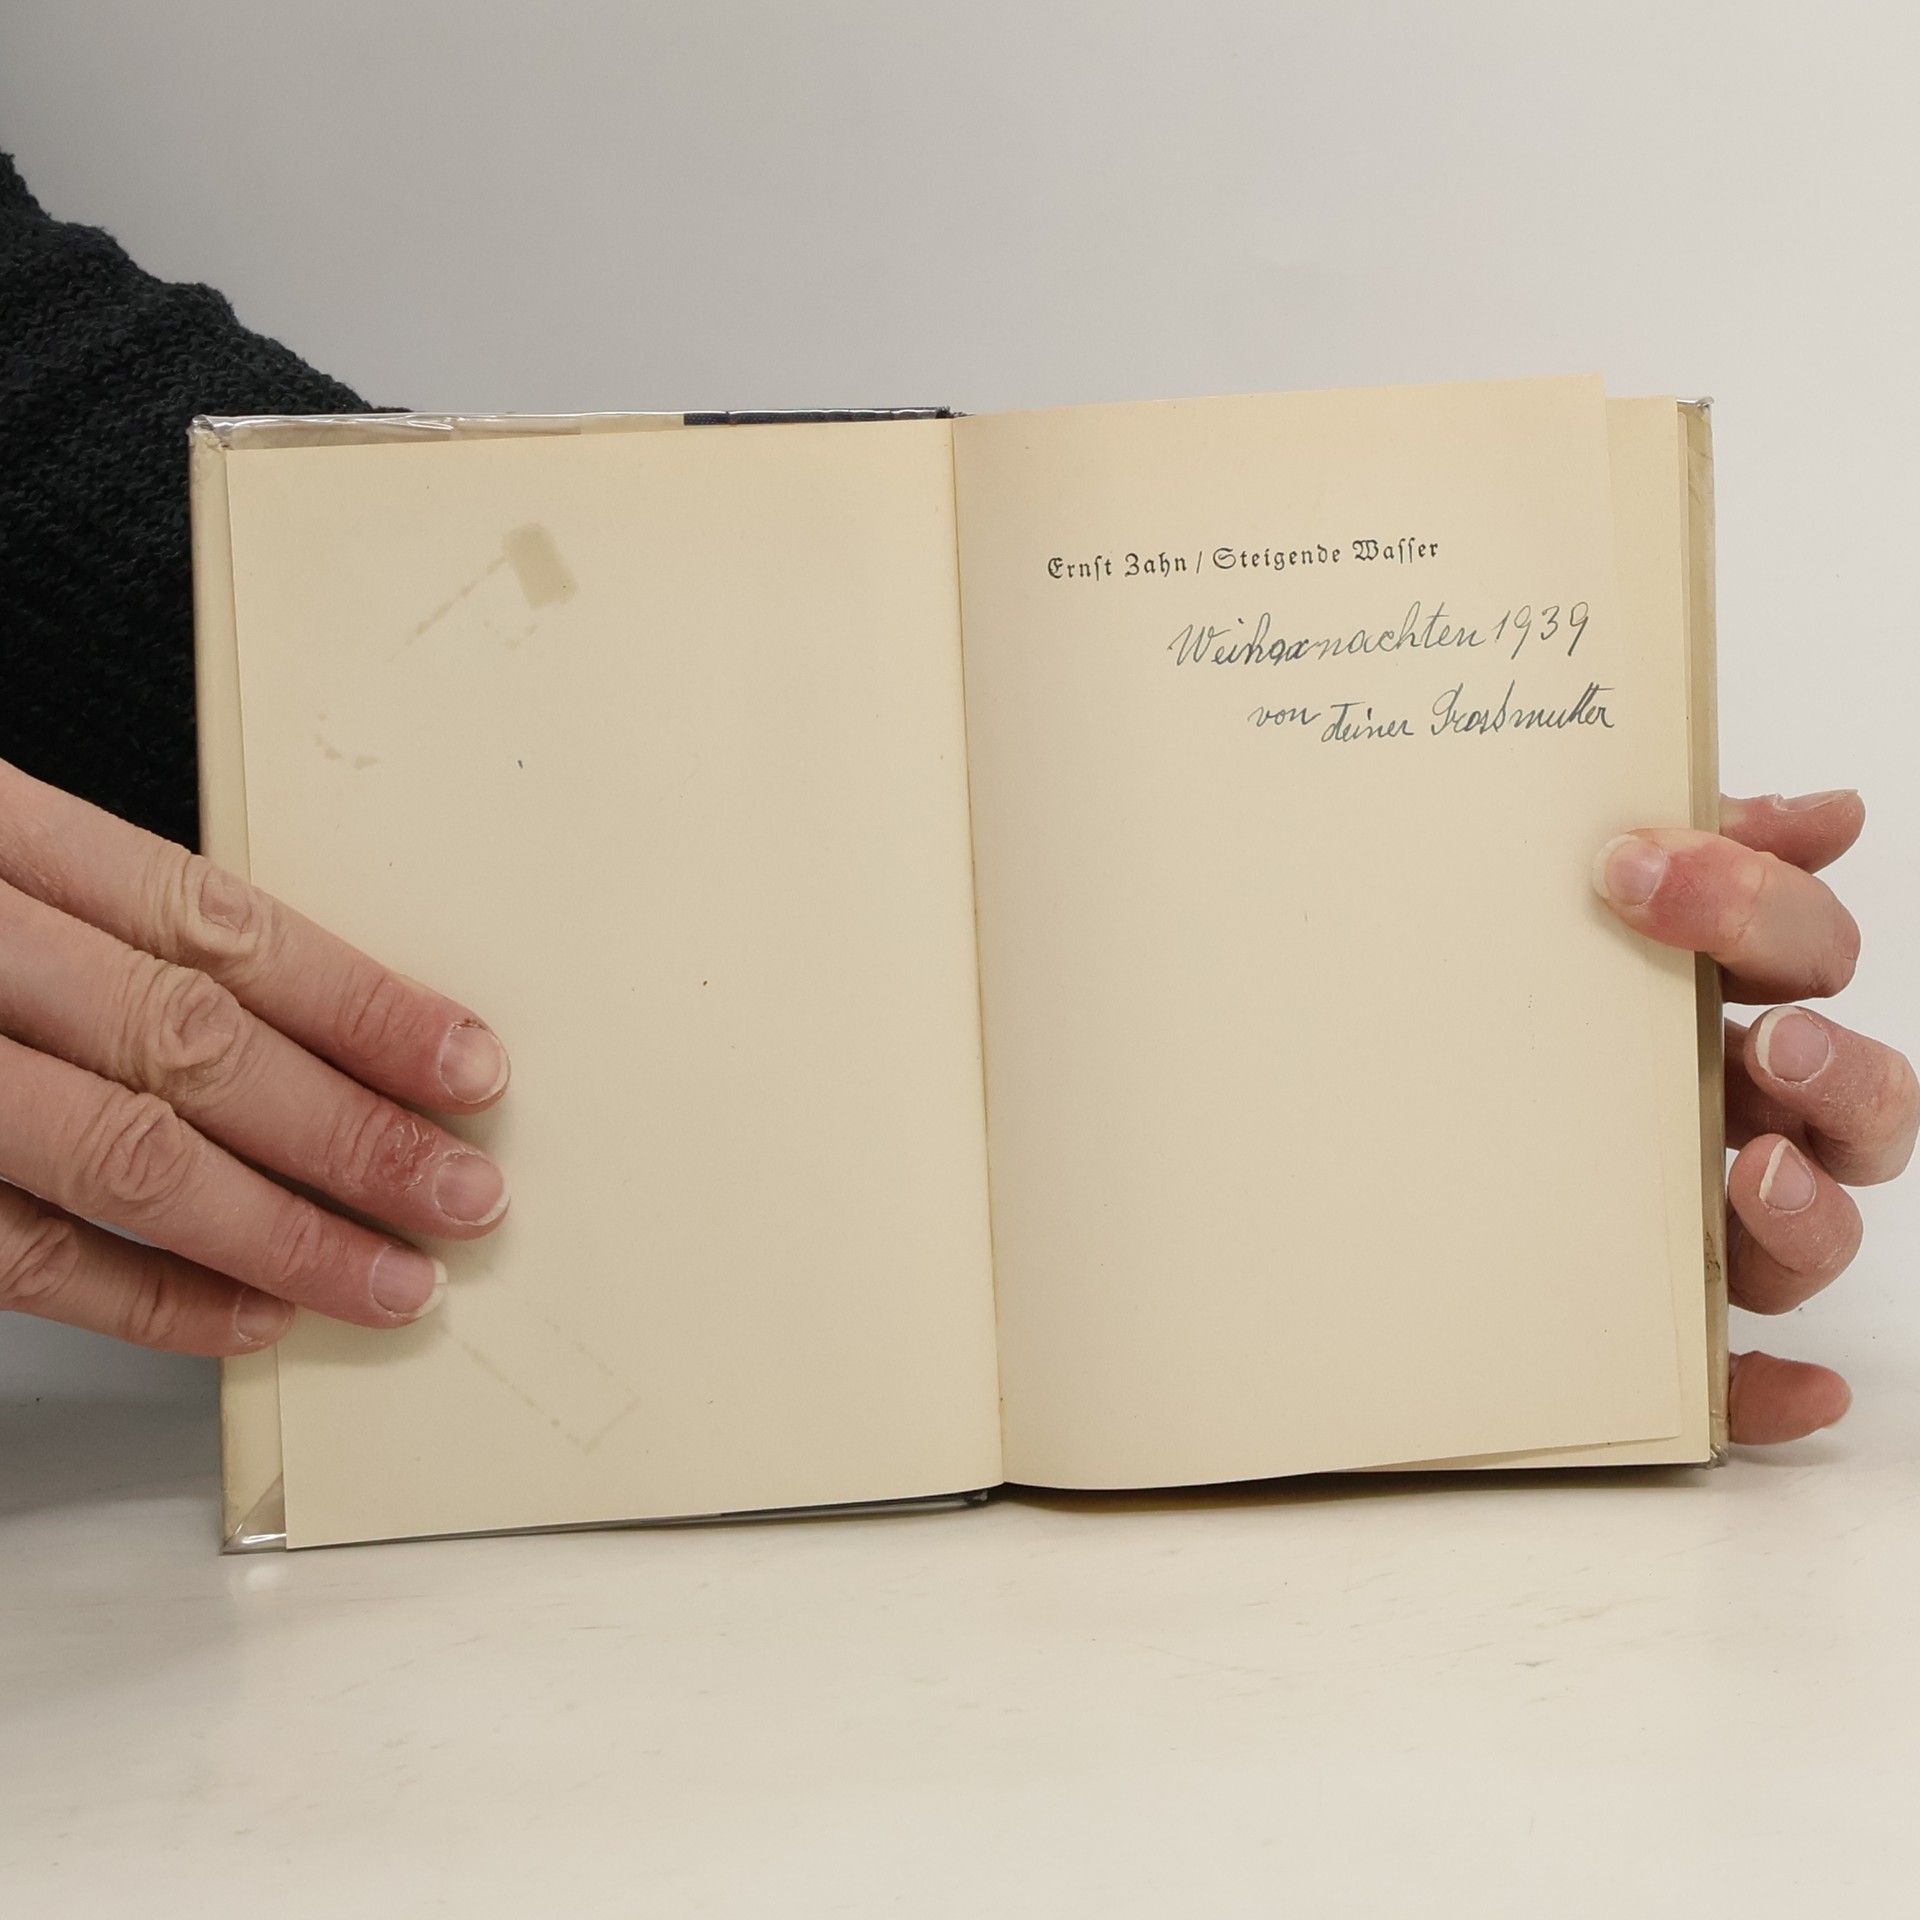 Ernſt Zahn / Steigende Waſſer
Weihnachten 1939
von Deiner Grossmutter